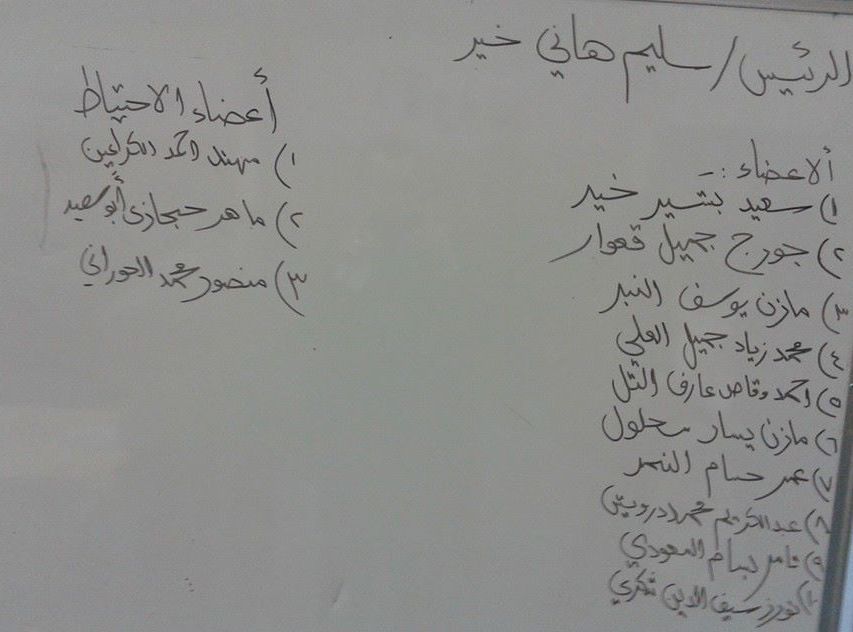 الرئيس / سليم هاني خير
الاعضاء :-
١) سعيد بشير خير
٢) جورج جميل قعوار
٣) مازن يوسف النبر
٤) محمد زياد جميل العلي
٥) احمد وقاص عارف التل
٦) مازن يسار سحلول
٧) عمر حسام النمر
٨) عبدالكريم محمد درويش
٩) تامر بسام السعودي
١٠) سيف الدين شكري
أعضاء الاحتياط
١) مهند احمد الكراعين
٢) ماهر حجازي أبو سعيد
٣) منصور محمد الحوراني